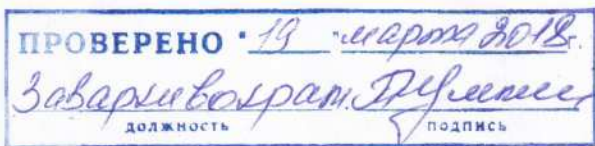 ПРОВЕРЕНО "19" марта 2018г.
Зав.архивохран.
должность подпись